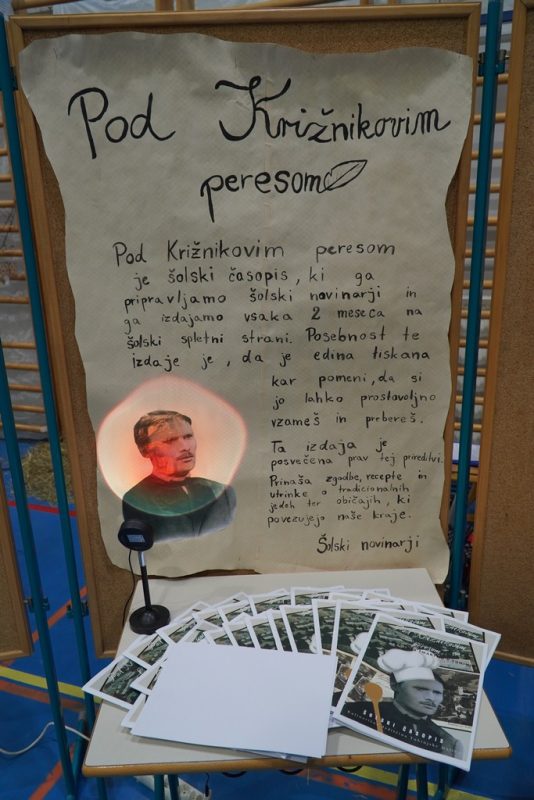 Pod Križnikovim
peresom
Pod Križnikovim peresom
je šolski časopis, ki ga
pripravljamo šolski novinarji in
ga izdajamo vsaka 2 meseca na
šolski spletni strani. Posebnost te
izdaje je, da je edina tiskana
kar pomeni, da si
jo lahko prostovoljno
vzameš in prebereš.
Ta izdaja je
posvečena prav tej prireditvi.
Prinaša zgodbe, recepte in
utrinke o tradicionalnih
jedeh ter običajih, ki
povezujejo naše kraje.
Šolski novinarji
ŠOLSKI ČASOPIS